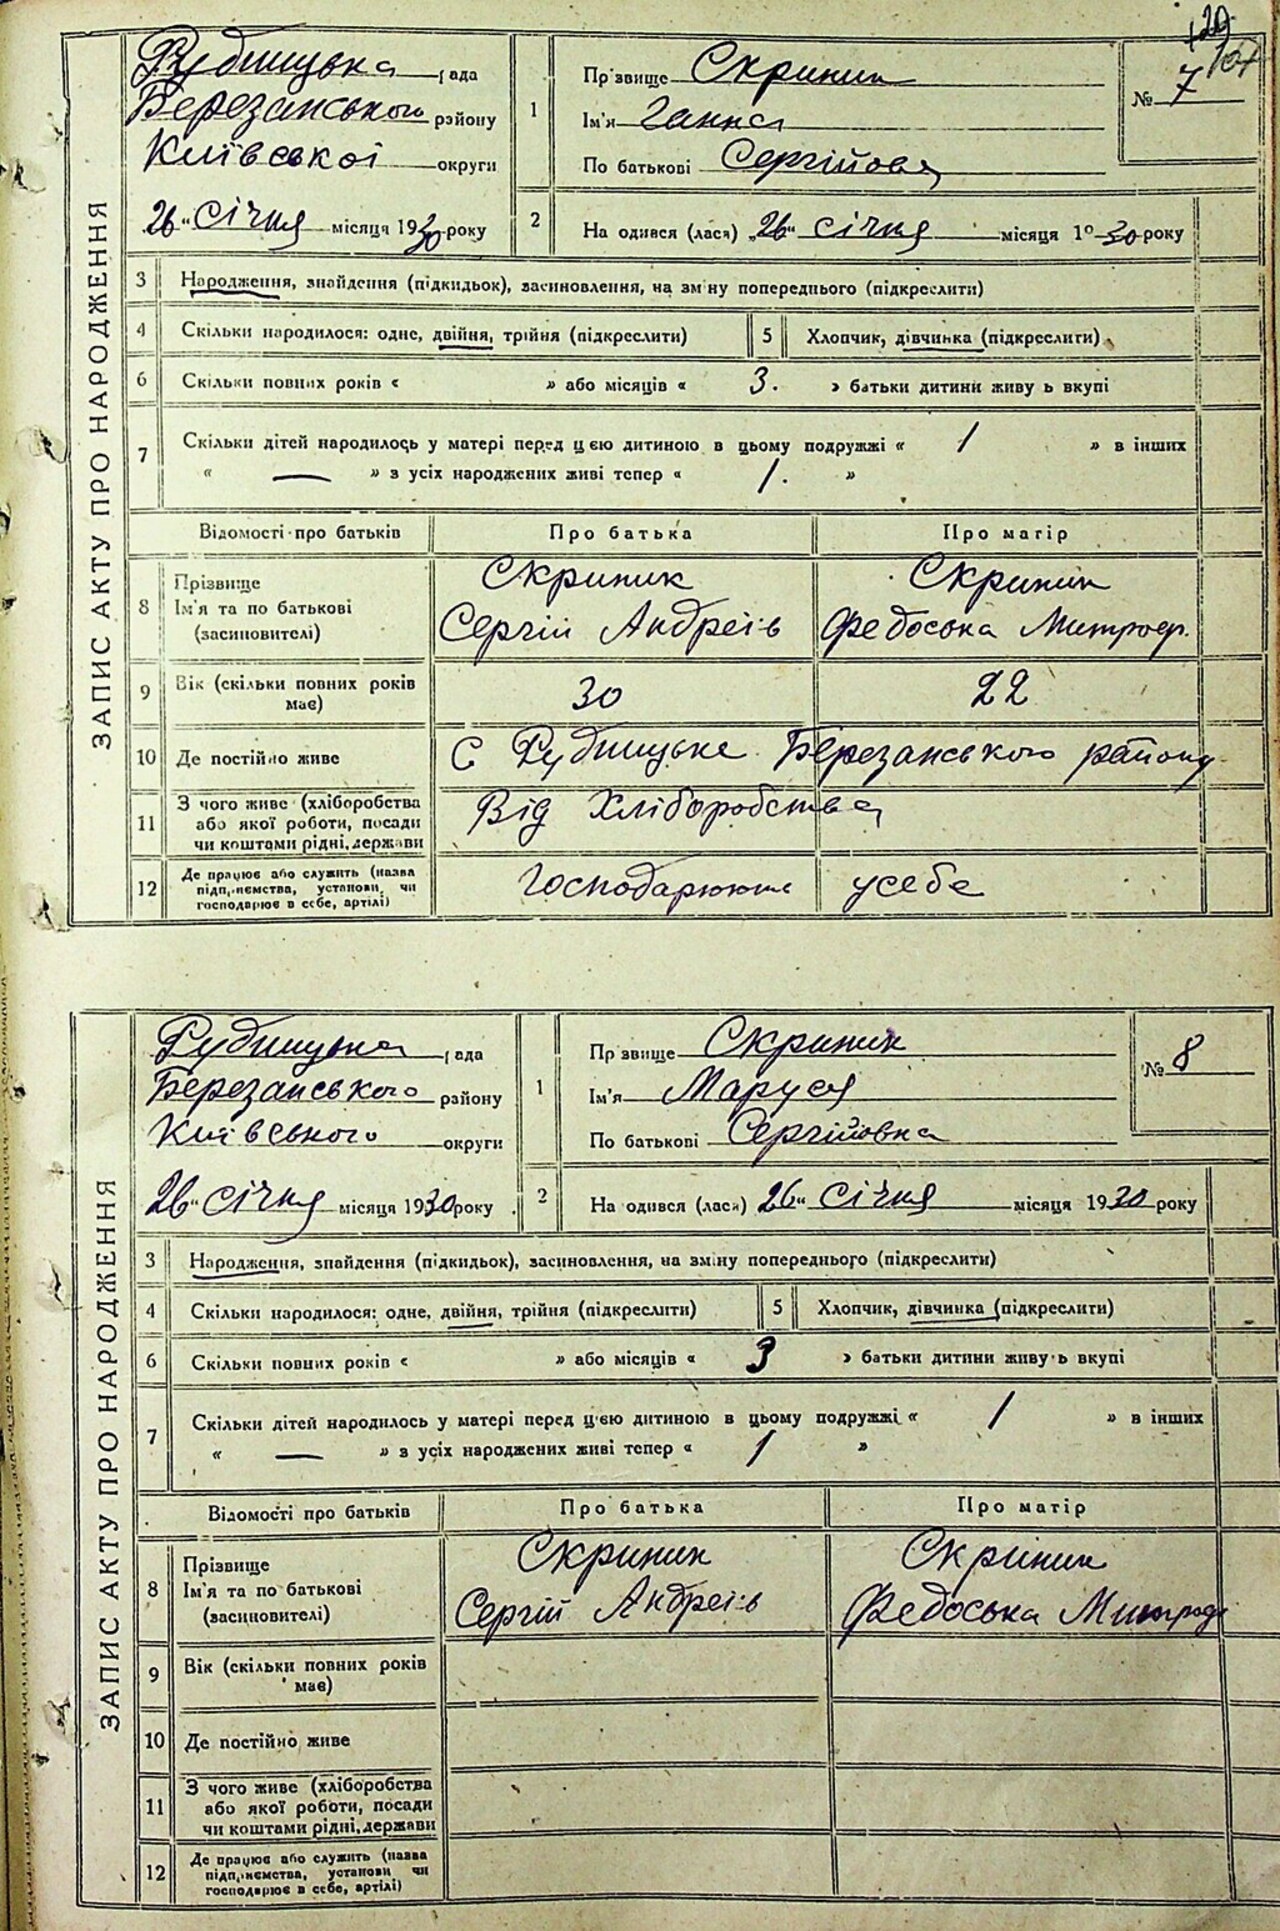 ЗАПИС АКТУ ПРО НАРОДЖЕННЯ
Рудницька рада
Березанського району
Київської округи
26 " січня місяця 1930 року
1 Прізвище Скрипик
Ім'я Ганна
По батькові Сергійова
№ 7
2 На одився (лася) „26" січня місяця 1930 року
3 Народження, знайдення (підкидьок), засиновлення, на зміну попереднього (підкреслити)
4 Скільки народилося: одне, двійня, трійня (підкреслити)
5 Хлопчик, дівчинка (підкреслити)
6 Скільки повних років « » або місяців « 3. » батьки дитини живуть вкупі
7 Скільки дітей народилось у матері перед цією дитиною в цьому подружжі « 1 » в інших
« — » з усіх народжених живі тепер « 1. »
Відомості про батьків Про батька Про матір
8 Прізвище
Ім'я та по батькові
(засиновителі)
Скрипик
Сергій Андреїв
Скрипик
Федоська Митроф.
9 Вік (скільки повних років має) 30 22
10 Де постійно живе С Рудницьке Березанського району
11 З чого живе (хліборобства
або якої роботи, посади
чи коштами рідні, держави
Від Хліборобства
12 Де працює або служить (назва
підприємства, установи, чи
господарює в себе, артілі)
Господарюють усебе
ЗАПИС АКТУ ПРО НАРОДЖЕННЯ
Рудницька рада
Березанського району
Київського округи
26 " січня місяця 1930 року
1 Прізвище Скрипик
Ім'я Маруся
По батькові Сергійовна
№ 8
2 На одився (лася) 26 " січня місяця 1930 року
3 Народження, знайдення (підкидьок), засиновлення, на зміну попереднього (підкреслити)
4 Скільки народилося: одне, двійня, трійня (підкреслити)
5 Хлопчик, дівчинка (підкреслити)
6 Скільки повних років « » або місяців « 3 » батьки дитини живуть вкупі
7 Скільки дітей народилось у матері перед цією дитиною в цьому подружжі « 1 » в інших
« — » з усіх народжених живі тепер « 1 »
Відомості про батьків Про батька Про матір
8 Прізвище
Ім'я та по батькові
(засиновителі)
Скрипик
Сергій Андреїв
Скрипик
Федоська Митроф
9 Вік (скільки повних років має)
10 Де постійно живе
11 З чого живе (хліборобства
або якої роботи, посади
чи коштами рідні, держави
12 Де працює або служить (назва
підприємства, установи чи
господарює в себе, артілі)